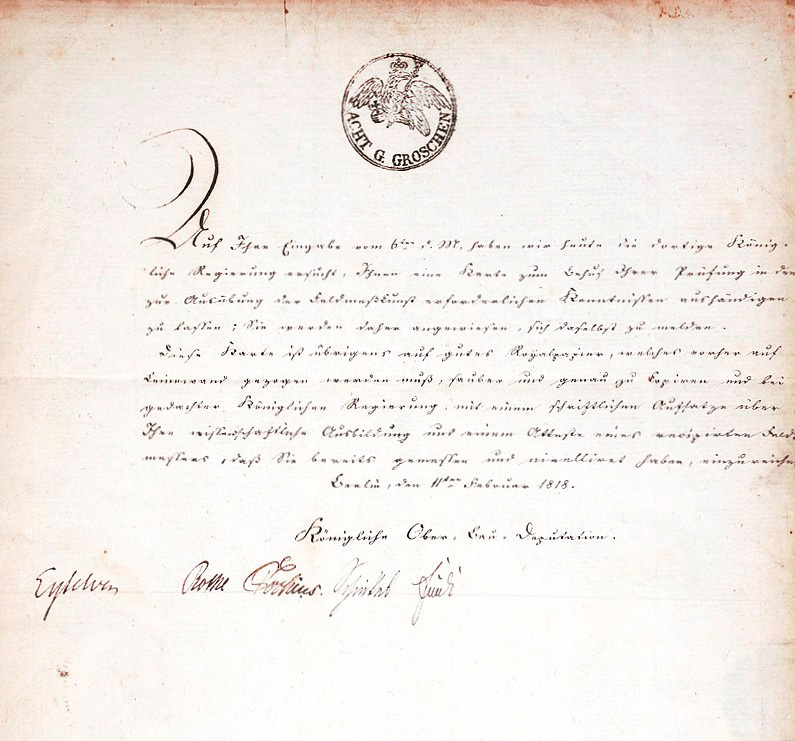 ACHT G. GROSCHEN
Auf Ihre Eingabe vom 6ten d. M. haben wir heute die dortige König-
liche Regierung ersucht, Ihnen eine Karte zum Behuf Ihrer Prüfung in den
zur Ausübung der Feldmeßkunst erforderlichen Kenntnissen aushändigen
zu lassen; Sie werden daher angewiesen, sich daselbst zu melden.
Diese Karte ist übrigens auf gutes Royalpapier, welches vorher auf
Leinewand gezogen werden muß, sauber und genau zu kopiren und bei
gedachter Königlichen Regierung, mit einem schriftlichen Aufsatze über
Ihre wissenschaftliche Ausbildung und einem Atteste eines recipirten Feld-
messers, daß Sie bereits gemessen und nivelliret haben, einzureichen
Berlin, den 11ten Februar 1818.
Königliche Ober-Bau-Deputation.
Eytelwein Rothe Schinkel